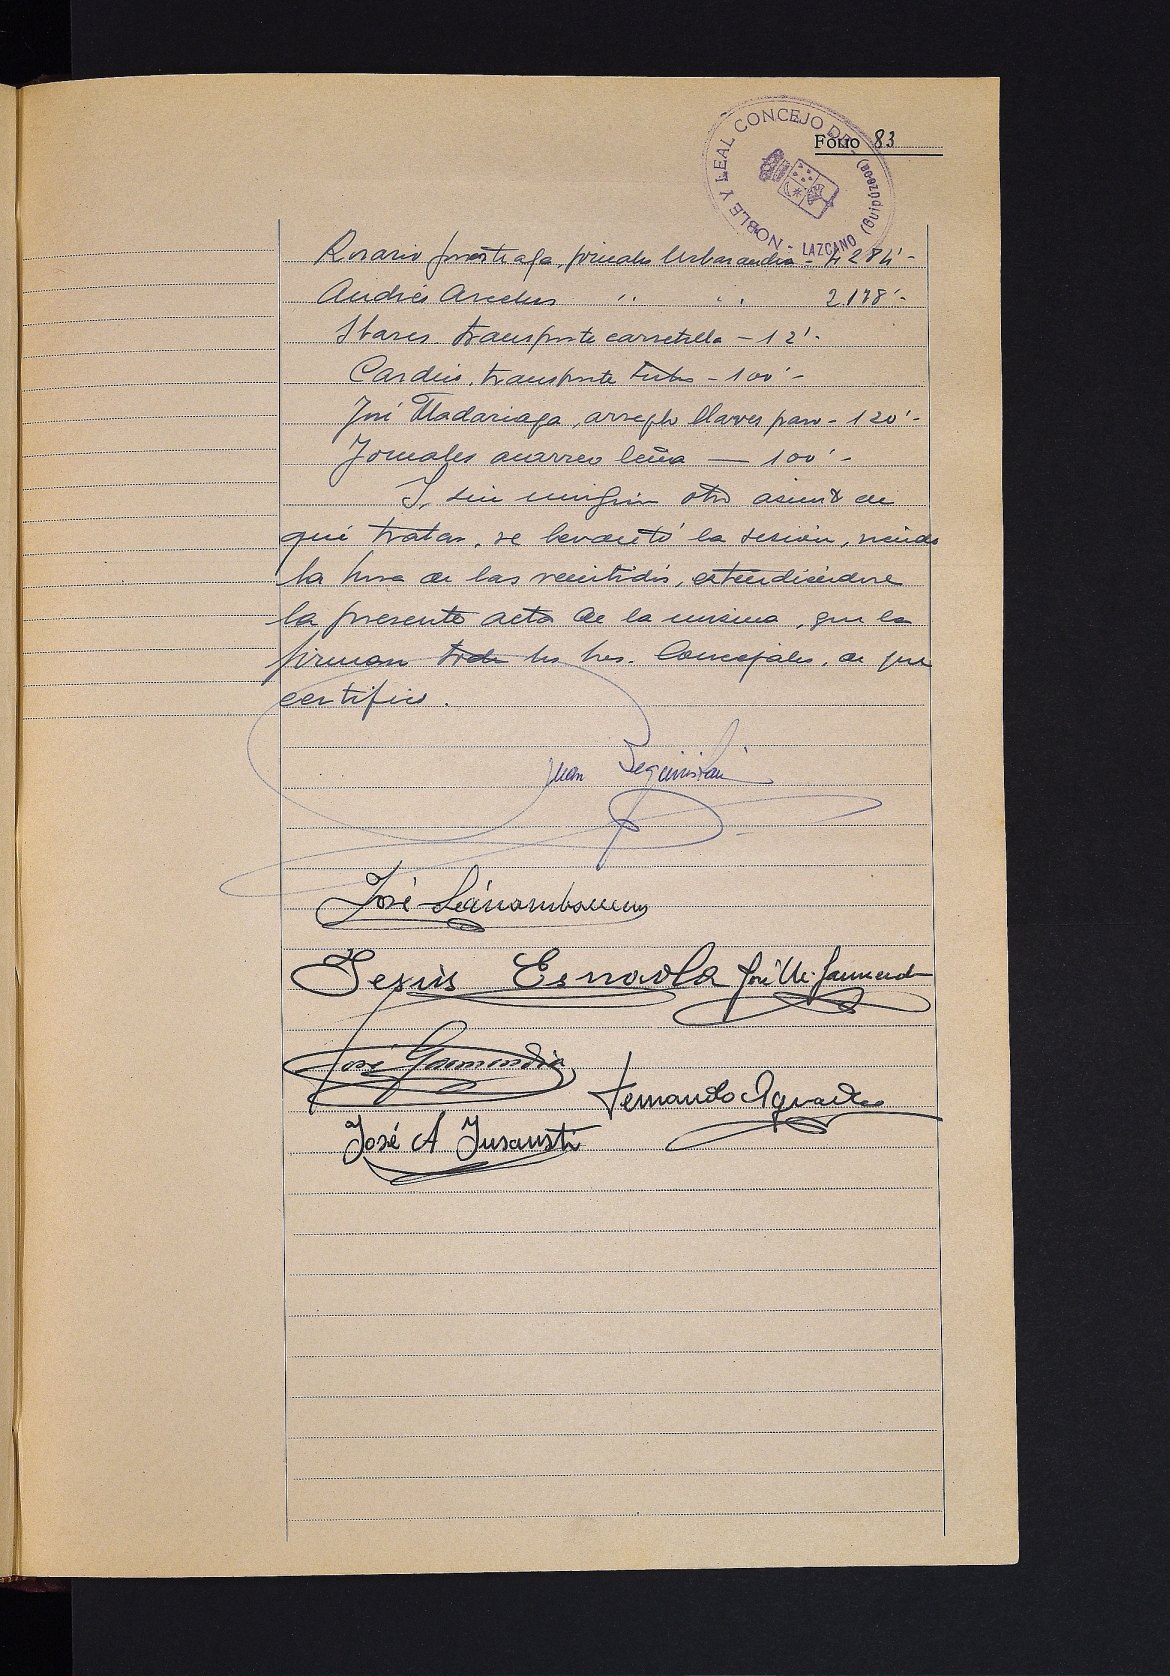 NOBLE Y LEAL CONCEJO DE - LAZCANO (Guipúzcoa)
Folio 83
Rosario jornales - 4284'-
Andrés Arcelus " " 2178'-
Ibares. transporte carretilla - 12'-
transporte tubos - 100'-
José Madariaga, arreglo llaves paso - 120'-
Jornales acarreo leña — 100'-
Y, sin ningún otro asunto de
qué tratar, se levantó la sesión, siendo
la hora de las veintidós, extendiéndose
la presente acta de la misma, que la
firman todos los Sres. Concejales, de que
certifico.
Juan
José
Jesús Esnaola José M. Garmendia
José Garmendia
Fernando Aguado
José A Insausti